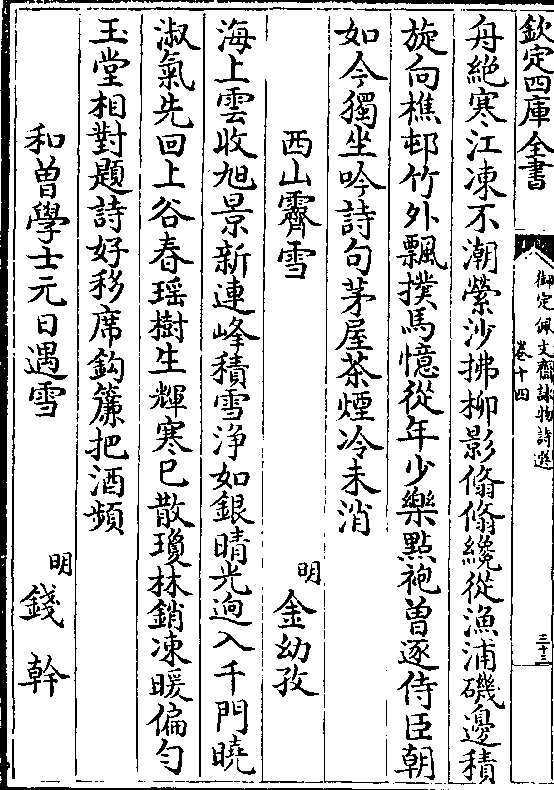 欽定四庫全書
御定佩文齋詠物詩選
卷十四
三十三
舟絶寒江凍不潮縈沙拂柳影翛翛纔從漁浦磯邊積
旋向樵邨竹外飄撲馬憶從年少樂點袍曽逐侍臣朝
如今獨坐吟詩句茅屋茶煙冷未消
西山霽雪
明 金幼孜
海上雲收旭景新連峰積雪淨如銀晴光逈入千門曉
淑氣先回上谷春瑶樹生輝寒已散瓊林銷凍暖偏勻
玉堂相對題詩好移席鈎簾把酒頻
和曽學士元日遇雪
明 錢幹